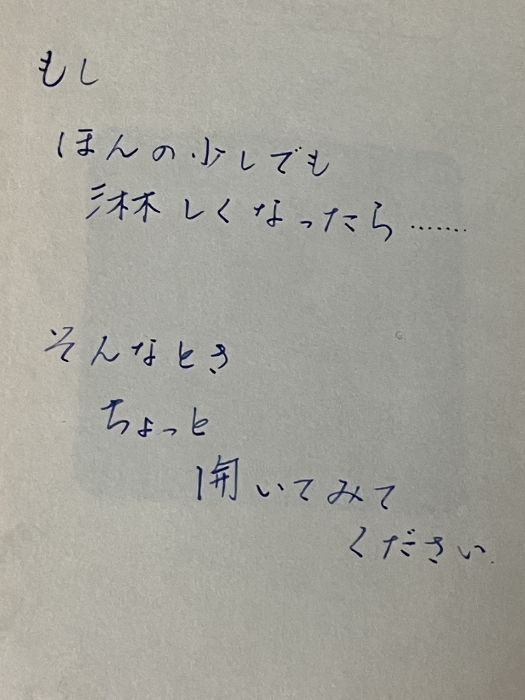 もし
ほんの少しでも
淋しくなったら……
そんなとき
ちょっと
開いてみて
ください